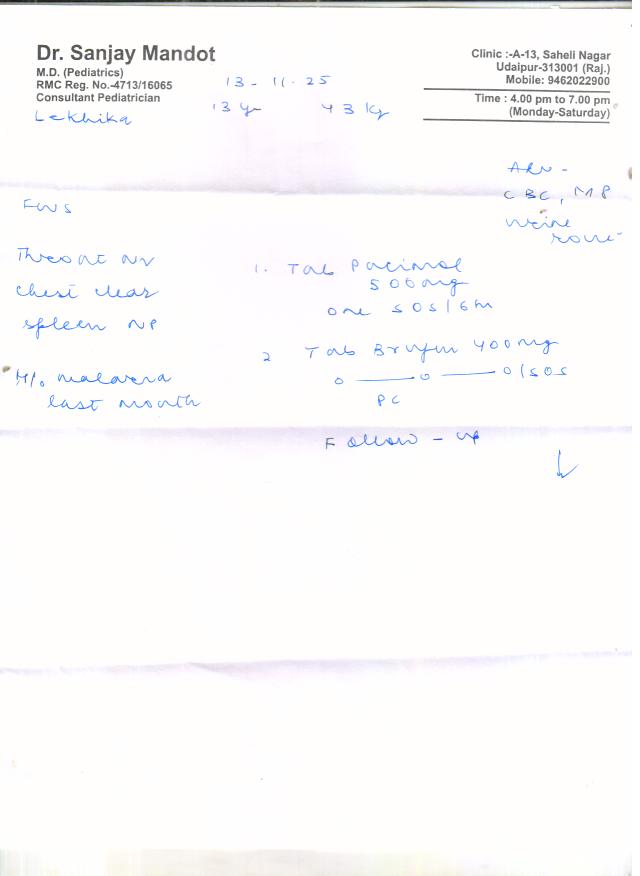 Dr. Sanjay Mandot
M.D. (Pediatrics)
RMC Reg. No.-4713/16065
Consultant Pediatrician
Clinic :-A-13, Saheli Nagar
Udaipur-313001 (Raj.)
Mobile: 9462022900
Time : 4.00 pm to 7.00 pm
(Monday-Saturday)
13-11-25
Lekhika 13 yr 43 kg
Adv -
CBC, MP
urine
FWS
Throat
chest clear
spleen NP
H/o malaria
last month
1. Tab Pacimol
500mg
one SOS/6hr
2 Tab Brufen 400mg
0 — 0 — 0/SOS
PC
Follow-up